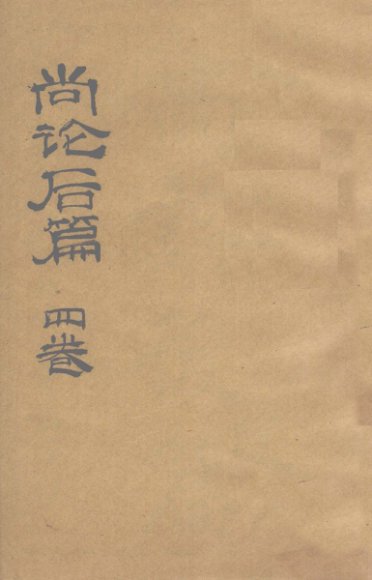 尚论后篇·四卷